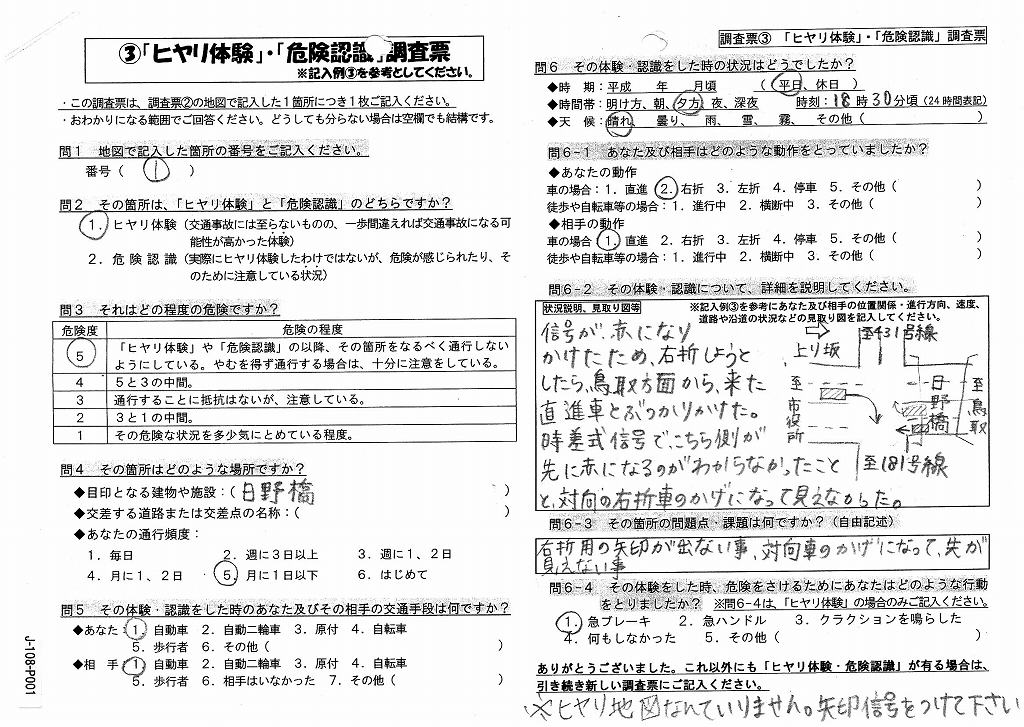 ③「ヒヤリ体験」・「危険認識」調査票
※記入例③を参考としてください。
・この調査票は、調査票②の地図で記入した1箇所につき1枚ご記入ください。
・おわかりになる範囲でご回答ください。どうしても分らない場合は空欄でも結構です。
問1 地図で記入した箇所の番号をご記入ください。
番号( 1 )
問2 その箇所は、「ヒヤリ体験」と「危険認識」のどちらですか?
1.ヒヤリ体験(交通事故には至らないものの、一歩間違えれば交通事故になる可
能性が高かった体験)
2.危険認識(実際にヒヤリ体験したわけではないが、危険が感じられたり、そ
のために注意している状況)
問3 それはどの程度の危険ですか?
危険度 危険の程度
5 「ヒヤリ体験」や「危険認識」の以降、その箇所をなるべく通行しない
ようにしている。やむを得ず通行する場合は、十分に注意をしている。
4 5と3の中間。
3 通行することに抵抗はないが、注意している。
2 3と1の中間。
1 その危険な状況を多少気にとめている程度。
問4 その箇所はどのような場所ですか?
◆目印となる建物や施設:( 日野橋 )
◆交差する道路または交差点の名称:( )
◆あなたの通行頻度:
1.毎日 2.週に3日以上 3.週に1、2日
4.月に1、2日 5.月に1日以下 6.はじめて
問5 その体験・認識をした時のあなた及びその相手の交通手段は何ですか?
◆あなた:1.自動車 2.自動二輪車 3.原付 4.自転車
5.歩行者 6.その他( )
◆相 手:1.自動車 2.自動二輪車 3.原付 4.自転車
5.歩行者 6.相手はいなかった 7.その他( )
J-108-P001
調査票③ 「ヒヤリ体験」・「危険認識」調査票
問6 その体験・認識をした時の状況はどうでしたか?
◆時 期:平成 年 月頃 (平日、休日)
◆時間帯:明け方、朝、夕方、夜、深夜 時刻:18時30分頃(24時間表記)
◆天 候:晴れ、 曇り、 雨、 雪、 霧、 その他( )
問6-1 あなた及び相手はどのような動作をとっていましたか?
◆あなたの動作
車の場合:1.直進 2.右折 3.左折 4.停車 5.その他( )
徒歩や自転車等の場合:1.進行中 2.横断中 3.その他( )
◆相手の動作
車の場合:1.直進 2.右折 3.左折 4.停車 5.その他( )
徒歩や自転車等の場合:1.進行中 2.横断中 3.その他( )
問6-2 その体験・認識について、詳細を説明してください。
状況説明、見取り図等 ※記入例③を参考にあなた及び相手の位置関係・進行方向、速度、
道路や沿道の状況などの見取り図を記入してください。
信号が、赤になり
かけたため、右折しようと
したら、鳥取方面から、来た
直進車とぶつかりかけた。
時差式信号で、こちら側が
先に赤になるのがわからなかったこと
と、対向の右折車のかげになって見えなかった。
⇨
上り坂
至431号線
至市役所
日野橋
至鳥取
至181号線
問6-3 その箇所の問題点・課題は何ですか?(自由記述)
右折用の矢印が出ない事、対向車のかげになって、先が
見えない事
問6-4 その体験をした時、危険をさけるためにあなたはどのような行動
をとりましたか? ※問6-4は、「ヒヤリ体験」の場合のみご記入ください。
1.急ブレーキ 2.急ハンドル 3.クラクションを鳴らした
4.何もしなかった 5.その他( )
ありがとうございました。これ以外にも「ヒヤリ体験・危険認識」が有る場合は、
引き続き新しい調査票にご記入ください。
※ヒヤリ地図なんていりません。矢印信号をつけて下さい